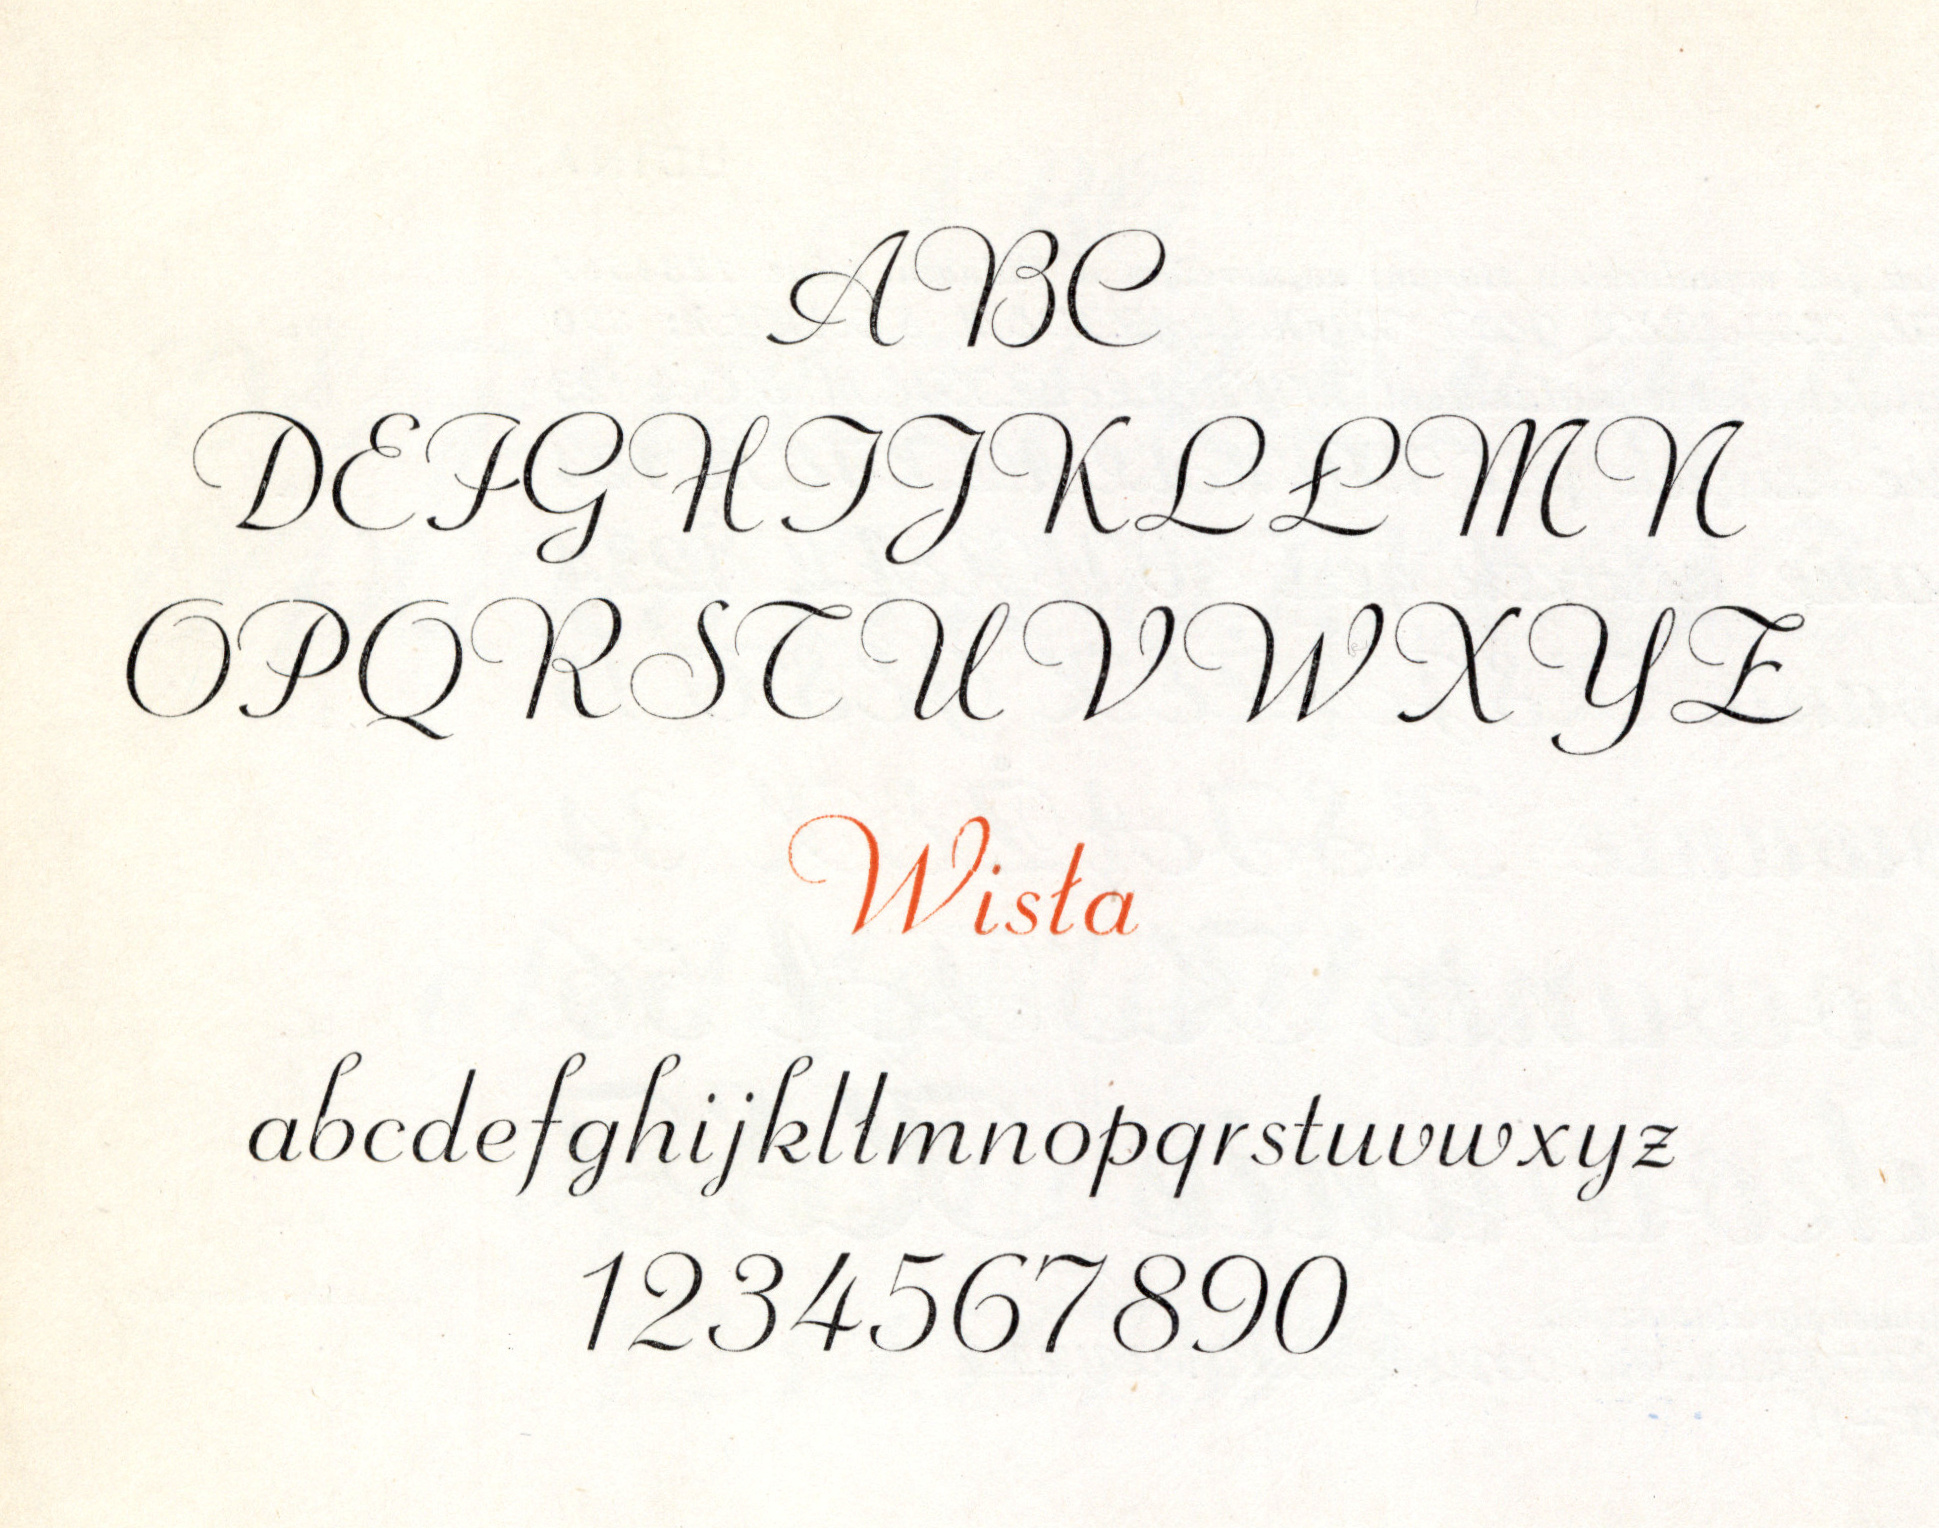 ABC
DEFGHIJKLŁMN
OPQRSTUVWXYZ
Wisła
abcdefghijklłmnopqrstuvwxyz
1234567890